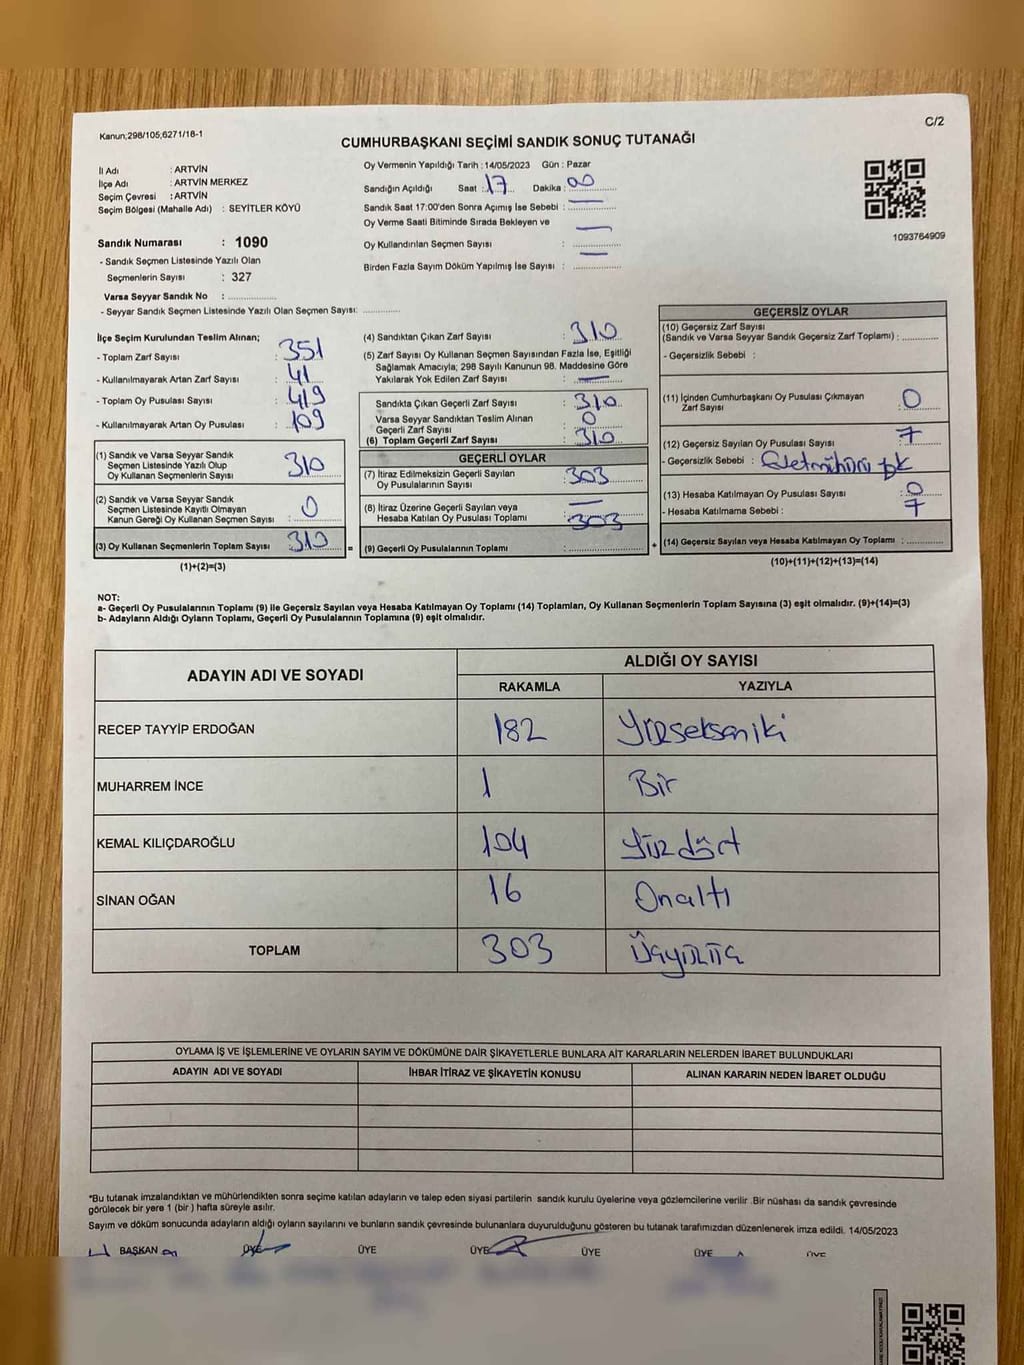 Kanun;298/105,6271/18-1
C/2
CUMHURBAŞKANI SEÇİMİ SANDIK SONUÇ TUTANAĞI
İl Adı : ARTVİN
İlçe Adı : ARTVİN MERKEZ
Seçim Çevresi : ARTVİN
Seçim Bölgesi (Mahalle Adı) : SEYİTLER KÖYÜ
Sandık Numarası : 1090
- Sandık Seçmen Listesinde Yazılı Olan
Seçmenlerin Sayısı : 327
Varsa Seyyar Sandık No : ................
- Seyyar Sandık Seçmen Listesinde Yazılı Olan Seçmen Sayısı: ............
Oy Vermenin Yapıldığı Tarih : 14/05/2023 Gün : Pazar
Sandığın Açıldığı Saat : 17 Dakika : 00
Sandık Saat 17:00'den Sonra Açımış İse Sebebi : —
Oy Verme Saati Bitiminde Sırada Bekleyen ve
Oy Kullandırılan Seçmen Sayısı : —
Birden Fazla Sayım Döküm Yapılmış İse Sayısı : —
1093764909
İlçe Seçim Kurulundan Teslim Alınan;
- Toplam Zarf Sayısı : 351
- Kullanılmayarak Artan Zarf Sayısı : 41
- Toplam Oy Pusulası Sayısı : 419
- Kullanılmayarak Artan Oy Pusulası : 109
(1) Sandık ve Varsa Seyyar Sandık
Seçmen Listesinde Yazılı Olup
Oy Kullanan Seçmenlerin Sayısı : 310
(2) Sandık ve Varsa Seyyar Sandık
Seçmen Listesinde Kayıtlı Olmayan
Kanun Gereği Oy Kullanan Seçmen Sayısı : 0
(3) Oy Kullanan Seçmenlerin Toplam Sayısı : 310
(1)+(2)=(3)
(4) Sandıktan Çıkan Zarf Sayısı : 310
(5) Zarf Sayısı Oy Kullanan Seçmen Sayısından Fazla İse, Eşitliği
Sağlamak Amacıyla; 298 Sayılı Kanunun 98. Maddesine Göre
Yakılarak Yok Edilen Zarf Sayısı : —
Sandıkta Çıkan Geçerli Zarf Sayısı : 310
Varsa Seyyar Sandıktan Teslim Alınan
Geçerli Zarf Sayısı : 0
(6) Toplam Geçerli Zarf Sayısı : 310
GEÇERLİ OYLAR
(7) İtiraz Edilmeksizin Geçerli Sayılan
Oy Pusulalarının Sayısı : 303
(8) İtiraz Üzerine Geçerli Sayılan veya
Hesaba Katılan Oy Pusulası Toplamı : —
303
(9) Geçerli Oy Pusulalarının Toplamı : ................
GEÇERSİZ OYLAR
(10) Geçersiz Zarf Sayısı
(Sandık ve Varsa Seyyar Sandık Geçersiz Zarf Toplamı) : ............
- Geçersizlik Sebebi :
(11) İçinden Cumhurbaşkanı Oy Pusulası Çıkmayan
Zarf Sayısı : 0
(12) Geçersiz Sayılan Oy Pusulası Sayısı : 7
- Geçersizlik Sebebi :
(13) Hesaba Katılmayan Oy Pusulası Sayısı : 0
- Hesaba Katılmama Sebebi : 7
(14) Geçersiz Sayılan veya Hesaba Katılmayan Oy Toplamı : ............
(10)+(11)+(12)+(13)=(14)
NOT:
a- Geçerli Oy Pusulalarının Toplamı (9) ile Geçersiz Sayılan veya Hesaba Katılmayan Oy Toplamı (14) Toplamları, Oy Kullanan Seçmenlerin Toplam Sayısına (3) eşit olmalıdır. (9)+(14)=(3)
b- Adayların Aldığı Oyların Toplamı, Geçerli Oy Pusulalarının Toplamına (9) eşit olmalıdır.
ADAYIN ADI VE SOYADI ALDIĞI OY SAYISI
RAKAMLA YAZIYLA
RECEP TAYYİP ERDOĞAN 182 Yüzseksen iki
MUHARREM İNCE 1 Bir
KEMAL KILIÇDAROĞLU 104 Yüzdört
SİNAN OĞAN 16 Onaltı
TOPLAM 303
OYLAMA İŞ VE İŞLEMLERİNE VE OYLARIN SAYIM VE DÖKÜMÜNE DAİR ŞİKAYETLERLE BUNLARA AİT KARARLARIN NELERDEN İBARET BULUNDUKLARI
ADAYIN ADI VE SOYADI İHBAR İTİRAZ VE ŞİKAYETİN KONUSU ALINAN KARARIN NEDEN İBARET OLDUĞU
*Bu tutanak imzalandıktan ve mühürlendikten sonra seçime katılan adayların ve talep eden siyasi partilerin sandık kurulu üyelerine veya gözlemcilerine verilir .Bir nüshası da sandık çevresinde
görülecek bir yere 1 (bir ) hafta süreyle asılır.
Sayım ve döküm sonucunda adayların aldığı oyların sayılarını ve bunların sandık çevresinde bulunanlara duyurulduğunu gösteren bu tutanak tarafımızdan düzenlenerek imza edildi. 14/05/2023
BAŞKAN ÜYE ÜYE ÜYE ÜYE ÜYE ÜYE